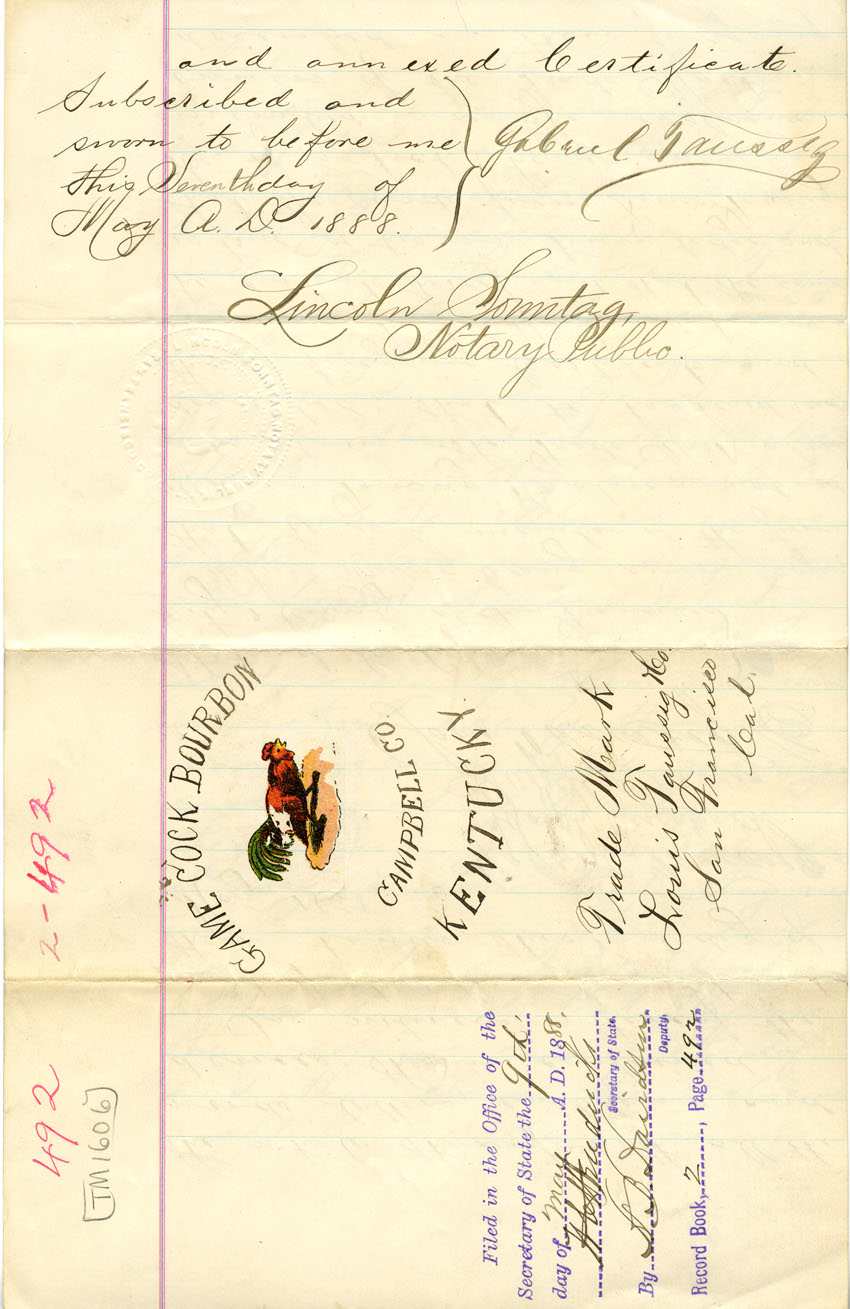 and annexed Certificate.
Subscribed and
sworn to before me
this Seventh day of
May A. D. 1888.
Gabriel Taussig
Lincoln Sonntag,
Notary Public.
GAME COCK BOURBON
CAMPBELL CO.
KENTUCKY.
Trade Mark
Louis Taussig & Co.
San Francisco
Cal.
2-492
492
TM1606
Filed in the Office of the
Secretary of State the 9th,
day of May A. D. 1888.
Secretary of State.
By
Deputy.
Record Book, 2, Page 492